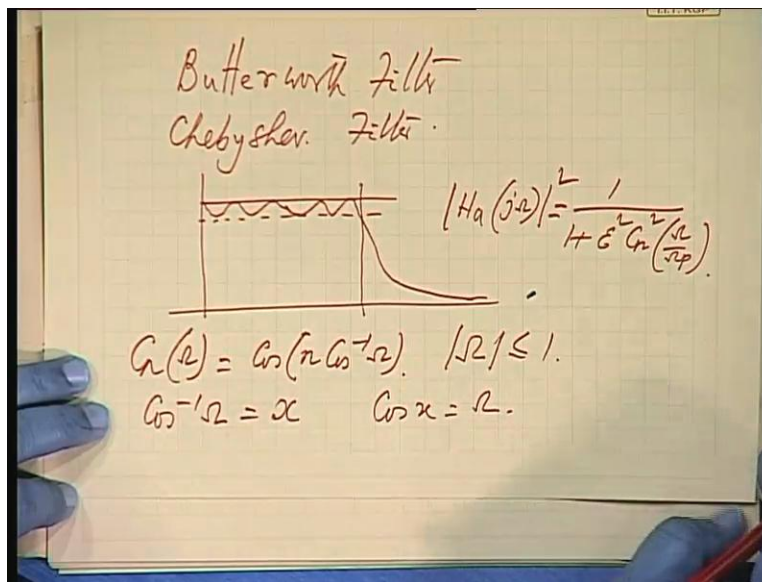 I.I.T. KGP
Butterworth Filter
Chebyshev. Filter.
|Ha(jΩ)|² = 1 / (1 + ε² Cn² (Ω/Ωp)).
Cn(Ω) = Cos(n Cos⁻¹Ω). |Ω| ≤ 1.
Cos⁻¹Ω = x Cos x = Ω.